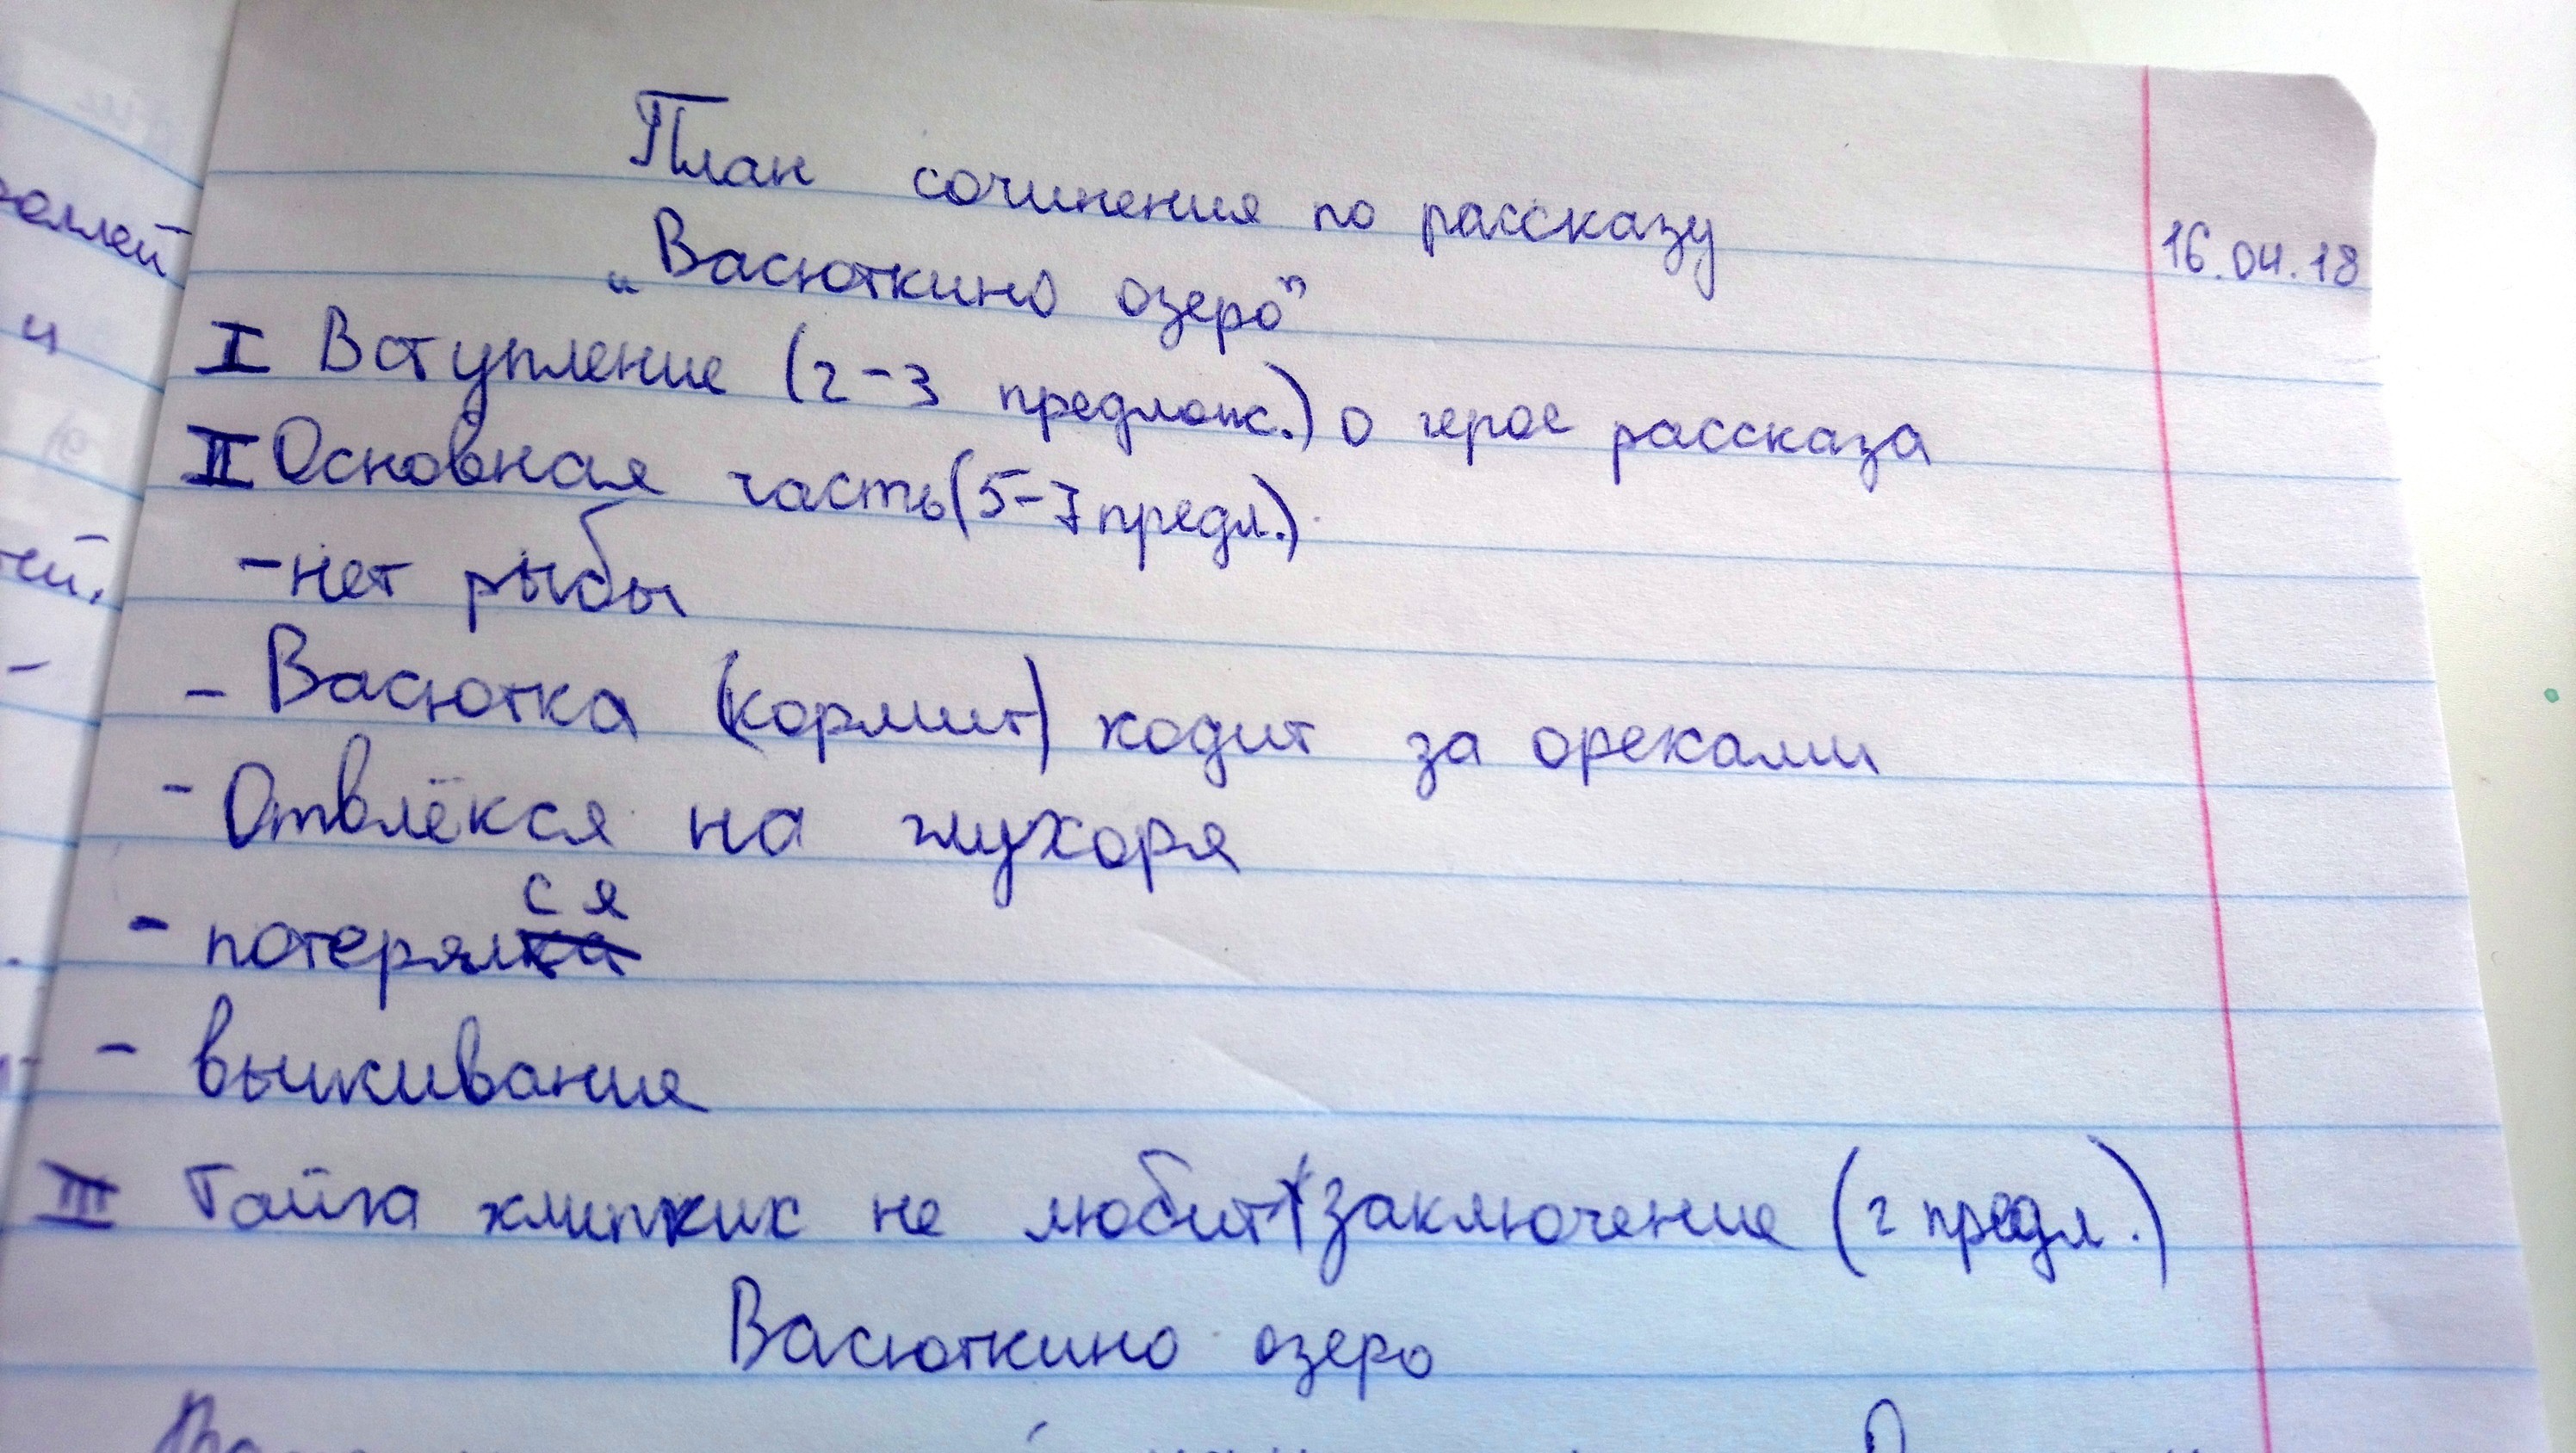 План сочинения по рассказу
16.04.18
„Васюткино озеро"
I Вступление (2-3 предлож.) о герое рассказа
II Основная часть (5-7 предл.).
- нет рыбы
- Васютка (кормит) ходит за орехами
- Отвлёкся на глухоря
- потерялся
- выживание
III Тайга хлипких не любит заключение (2 предл.)
Васюткино озеро